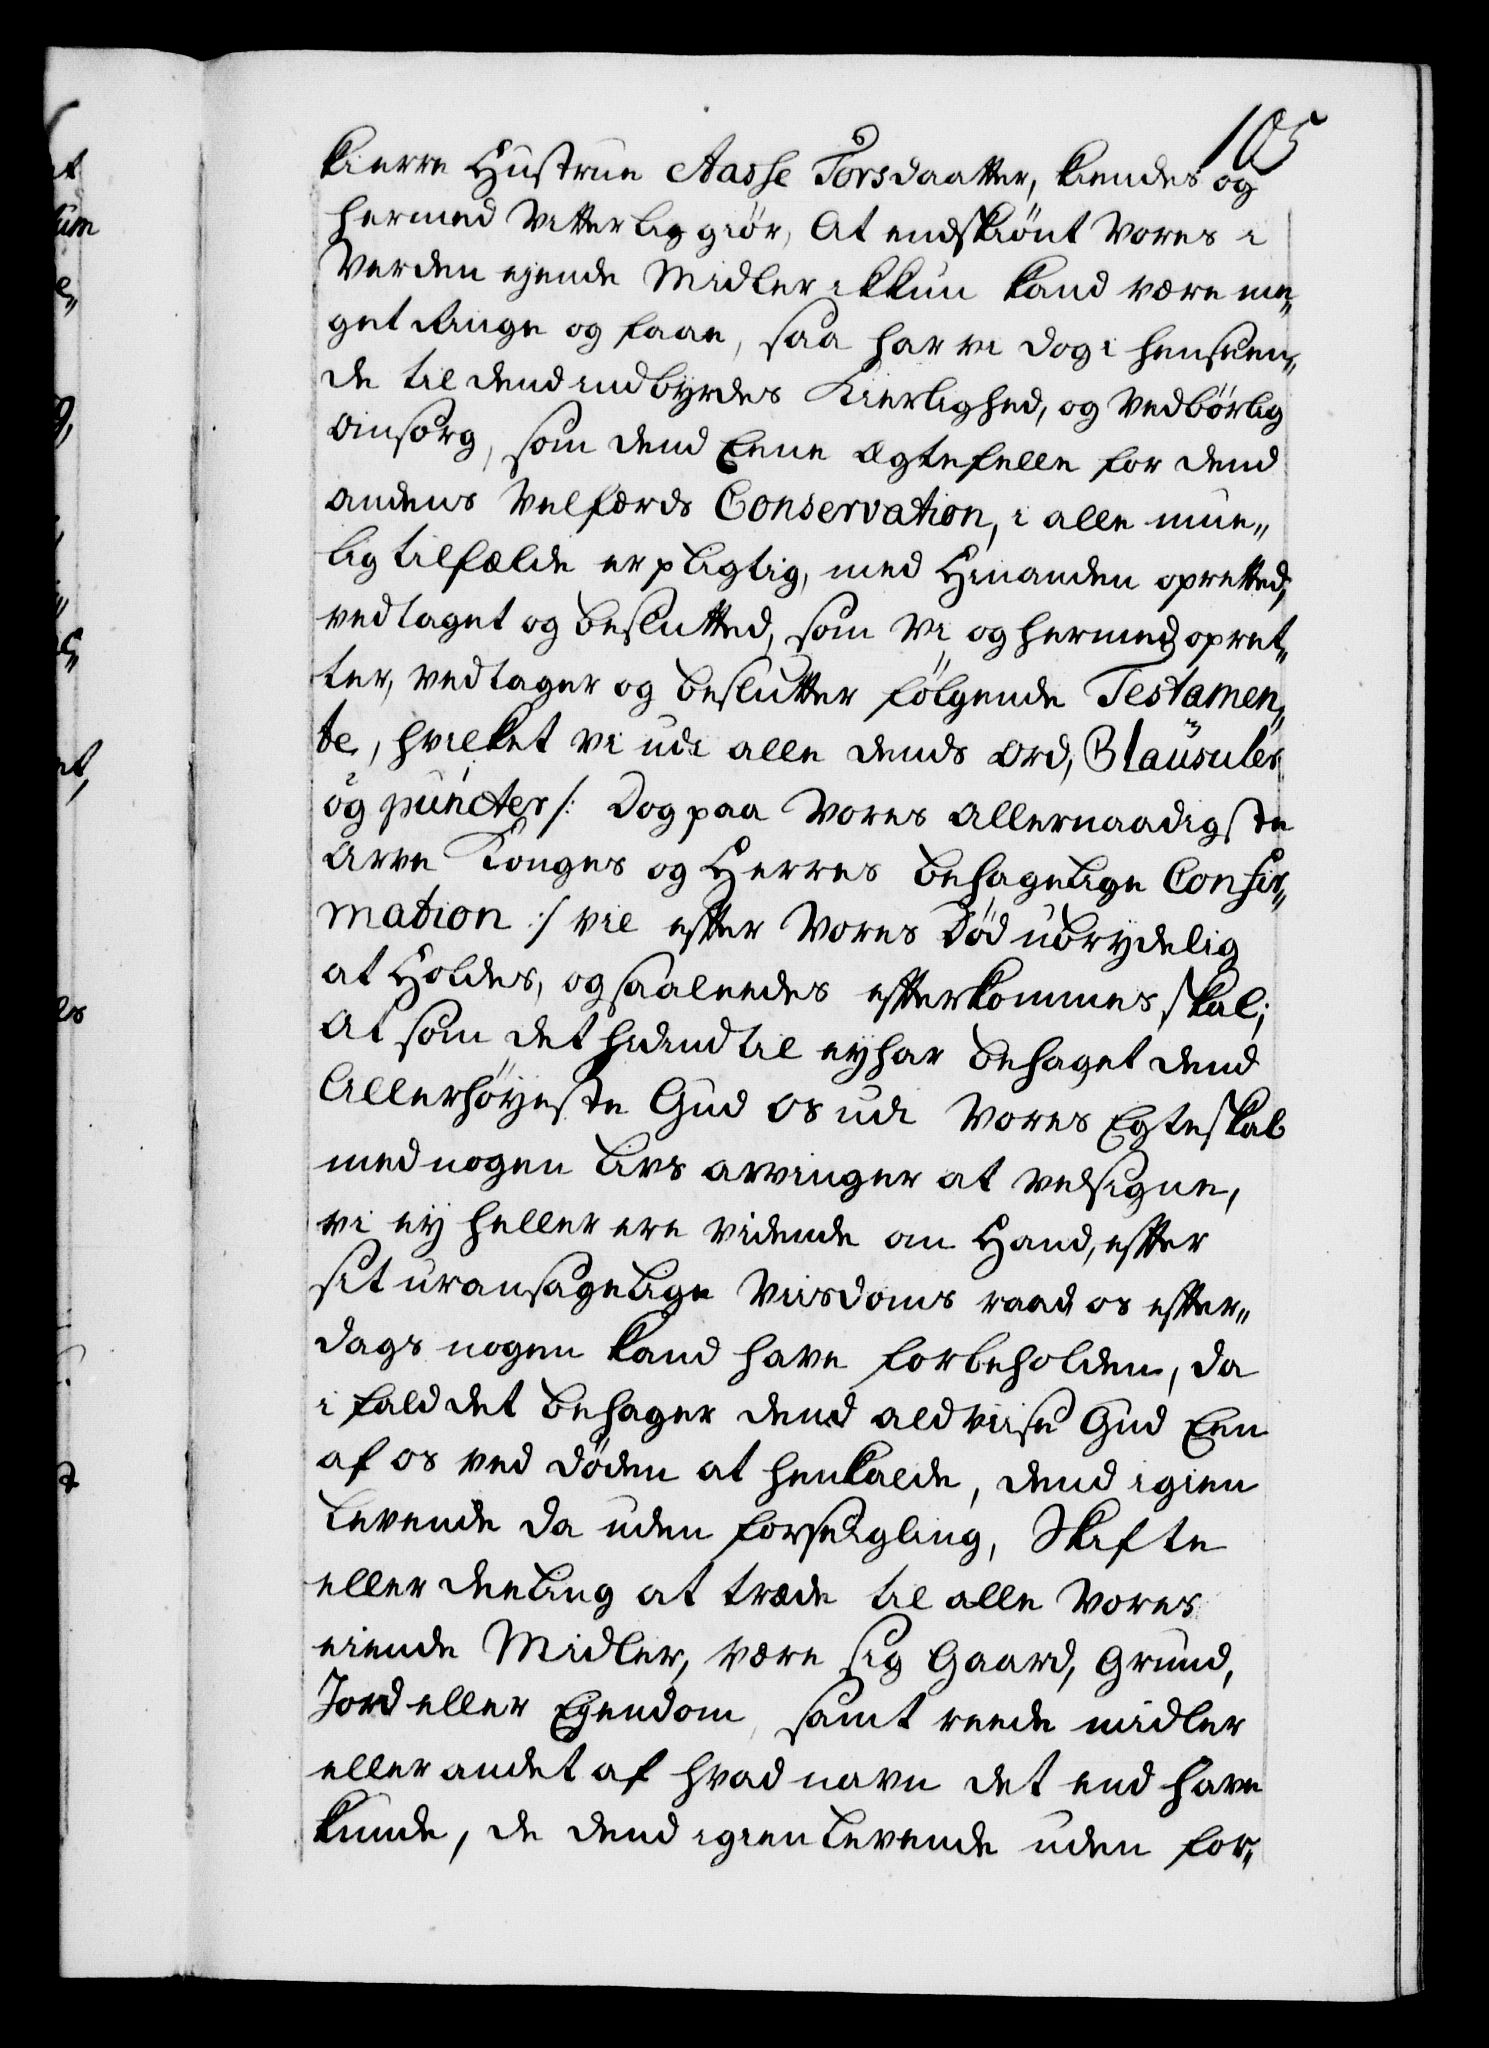 105
Kierre Hustrue Aasse Torsdaatter, kiendes og
hermed Vitterlig giör, At endskiönt Vores i
Verden ejende Midler ikkun kand være me„
get ringe og faae, saa har vi dog i henseen„
de til dend indbyrdes Kierlighed, og Vedbörlig
Omsorg, som dend Eene Ægtefelle for dend
andens Velfærds Conservation, i alle mue„
lig tilfælde er pligtig, med Hinanden opretted,
vedtaget og besluttted, som Vi og hermed opret„
ter, vedtager og beslutter fölgende Testamen„
te, hvilket vi udi alle dends Ord, Clausuler
og puncter /: Dog paa Vores Allernaadigste
Arve Konges og Herres behagelige Confir„
mation :/ vil efter Vores Död ubrydelig
at Holdes, og saaleedes efterkommes skal;
At som det hidindtil ey har behaget dend
Allerhöyeste Gud os udi Vores Egteskab
med nogen Livs arvinger at velsigne,
vi ey heller ere vidende om Hand, efter
sit uransagelige Viisdoms raad os efter„
dags nogen kand have forbeholden, da
i fald det behager dend aldviise Gud Een
af os ved döden at henkalde, dend igien
Levende da uden forseigling, Skifte
eller deeling at træde til alle Vores
eiende Midler, være sig Gaard, Grund,
Jord eller Ejendom, samt reede midler
eller andet af hvad navn det end have
kunde, de dend igienlevende uden for„